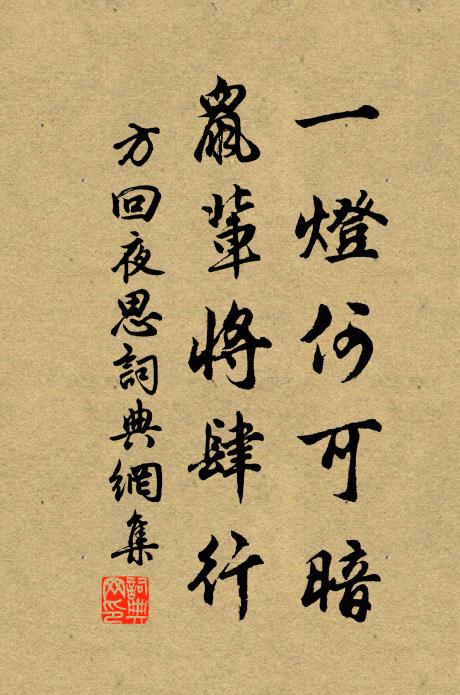 一燈何可暗
鼠輩將肆行
方回夜思詞典網集
詞典網印